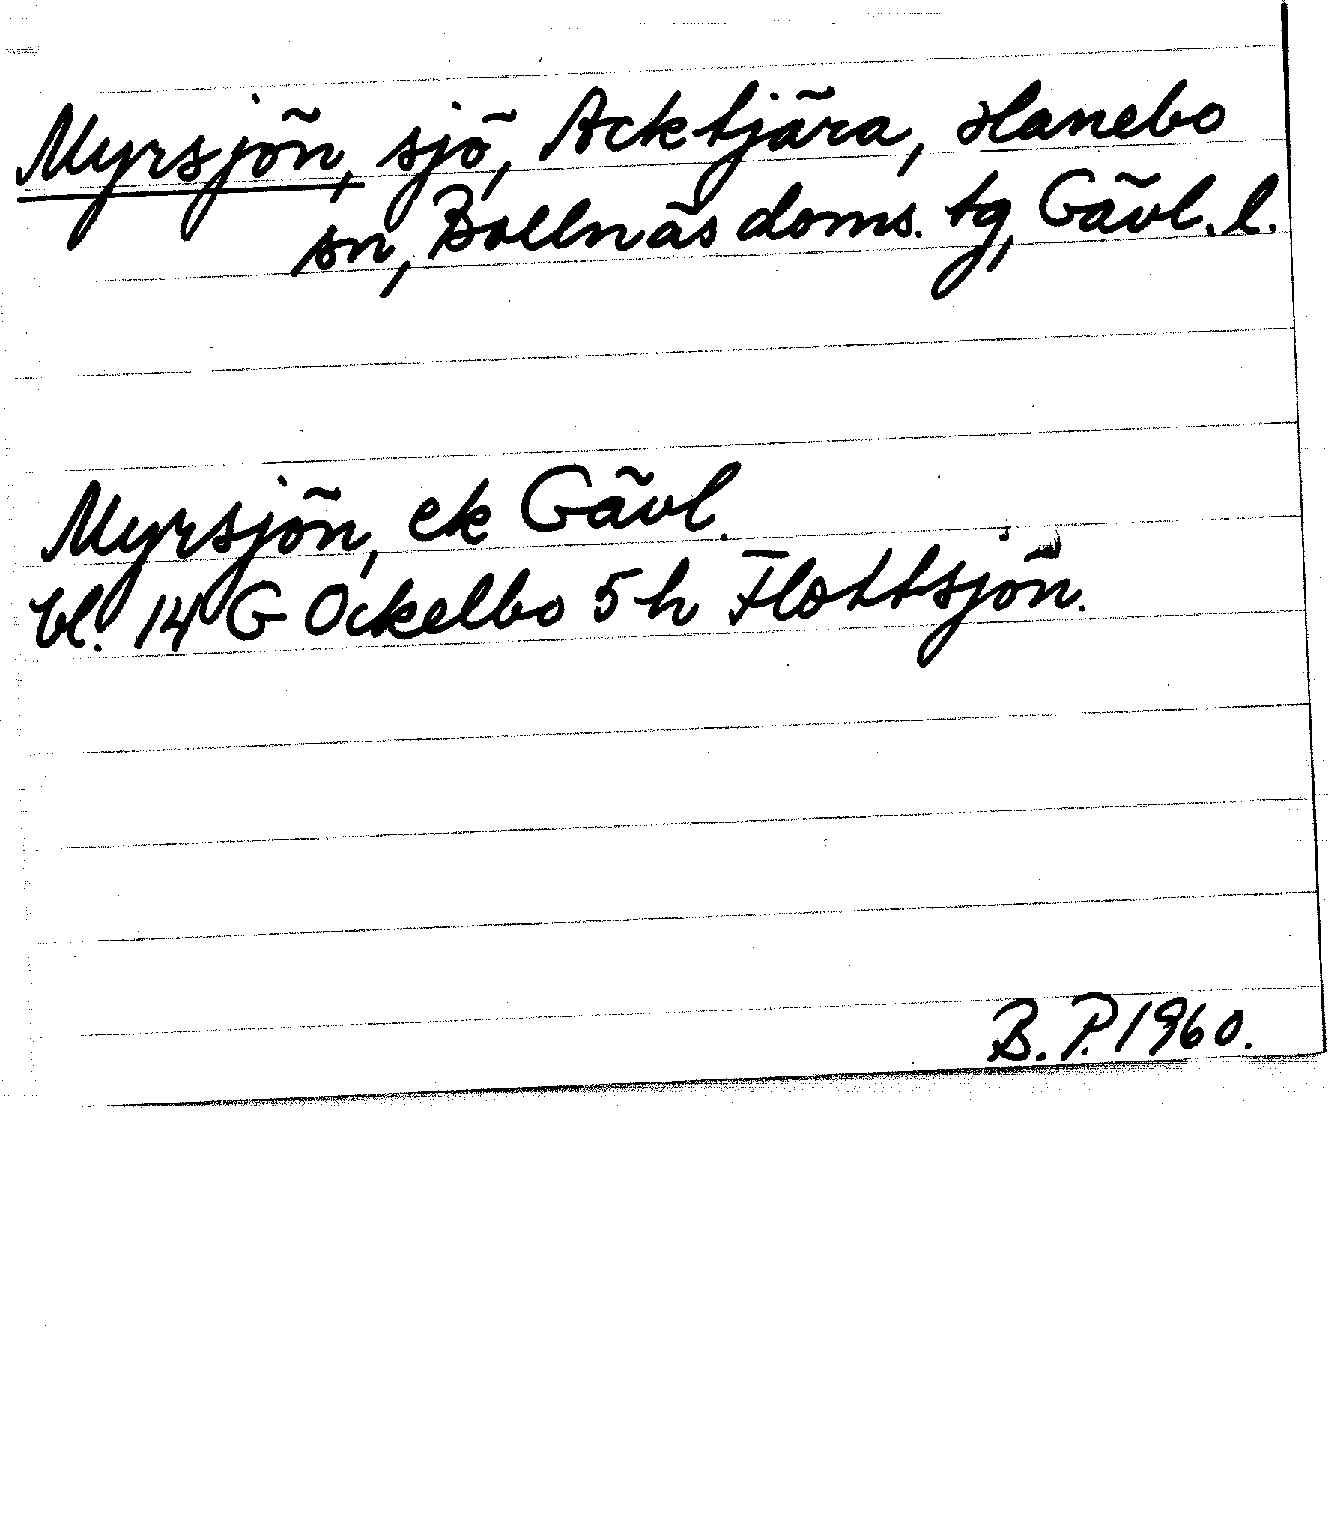 Myrsjön, sjö, Acktjära, Hanebo
sn, Bollnäs doms. tg, Gävl. l.
Myrsjön, ek Gävl.
bl. 14 G Ockelbo 5 h Flottsjön.
B. P. 1960.